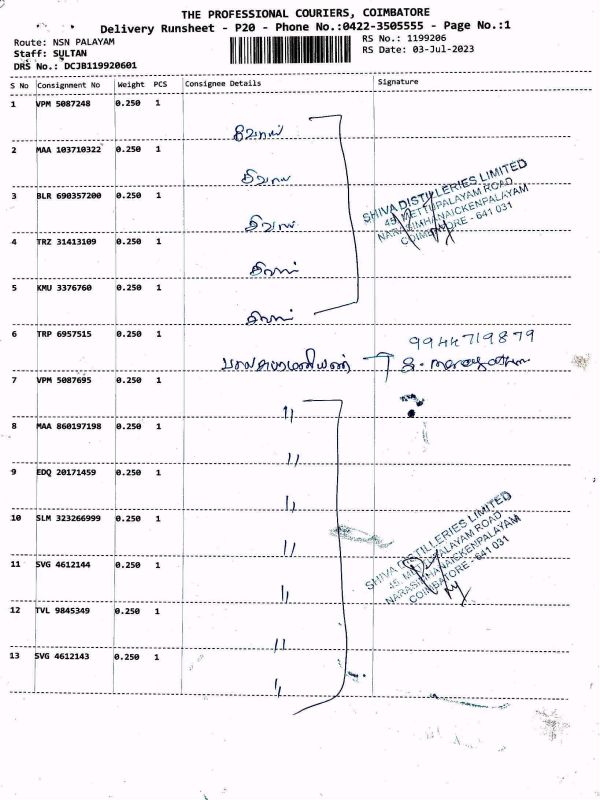 THE PROFESSIONAL COURIERS, COIMBATORE
Delivery Runsheet - P20 - Phone No.:0422-3505555 - Page No.:1
Route: NSN PALAYAM
RS No.: 1199206
Staff: SULTAN
RS Date: 03-Jul-2023
DRS No.: DCJB119920601
S No Consignment No Weight PCS Consignee Details Signature
1 VPM 5087248 0.250 1
சிவாஸ்
2 MAA 103710322 0.250 1
3 BLR 690357200 0.250 1
4 TRZ 31413109 0.250 1
5 KMU 3376760 0.250 1
SHIVA DISTILLERIES LIMITED
45, METTUPALAYAM ROAD,
NARASIMHANAICKENPALAYAM
COIMBATORE - 641 031
6 TRP 6957515 0.250 1
9944719879
பாலசுப்ரமணியன்
7 VPM 5087695 0.250 1
〃
8 MAA 860197198 0.250 1
〃
9 EDQ 20171459 0.250 1
〃
10 SLM 323266999 0.250 1
〃
11 SVG 4612144 0.250 1
〃
12 TVL 9845349 0.250 1
〃
13 SVG 4612143 0.250 1
〃
SHIVA DISTILLERIES LIMITED
45, METTUPALAYAM ROAD,
NARASIMHANAICKENPALAYAM
COIMBATORE - 641 031